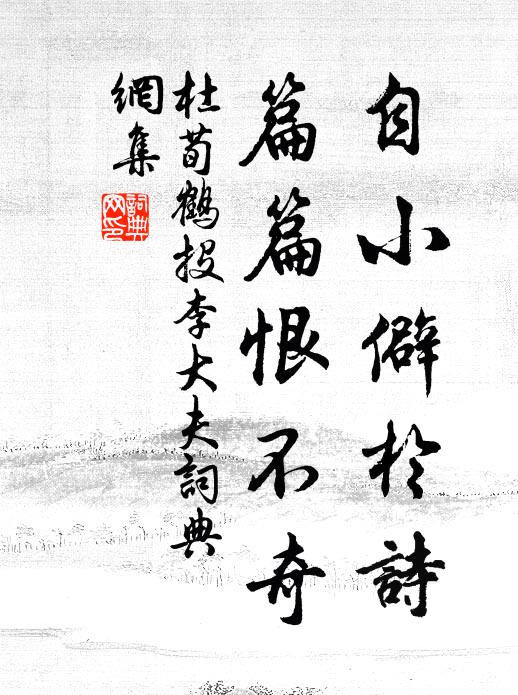 自小僻於詩
篇篇恨不奇
杜荀鶴投李大夫詞典
網集
詞典
网印